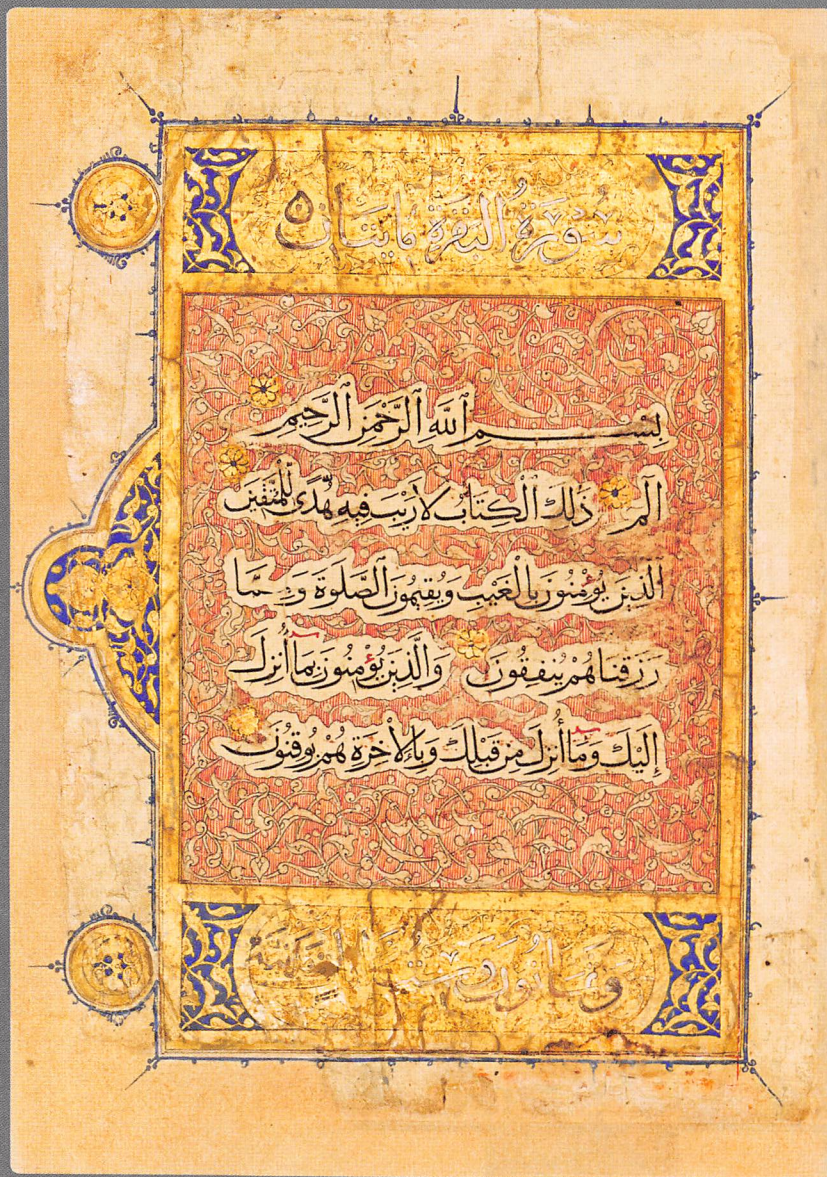 سورة البقرة مايتان
بِسْمِ ٱللَّهِ ٱلرَّحْمَٰنِ ٱلرَّحِيمِ
الم ذَلِكَ الْكِتَابُ لَا رَيْبَ فِيهِ هُدًى لِلْمُتَّقِينَ
الَّذِينَ يُؤْمِنُونَ بِالْغَيْبِ وَيُقِيمُونَ الصَّلَوةَ وَمِمَّا
رَزَقْنَاهُمْ يُنْفِقُونَ وَالَّذِينَ يُؤْمِنُونَ بِمَا أُنْزِلَ
إِلَيْكَ وَمَا أُنْزِلَ مِنْ قَبْلِكَ وَبِالْأَخِرَةِ هُمْ يُوقِنُونَ
وثمانون وست